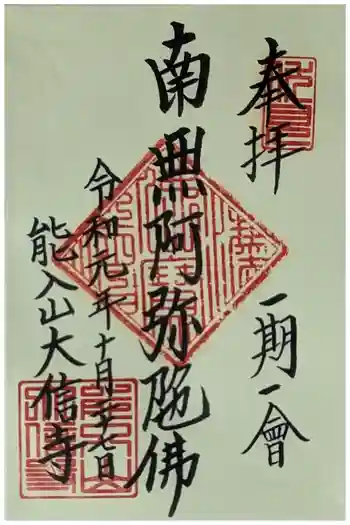 奉拝 一期一會
南無阿弥陀佛
令和元年十月二十七日
能入山大信寺